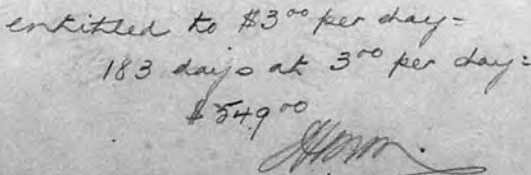 entitled to $3⁰⁰ per day=
183 days at 3⁰⁰ per day=
$549⁰⁰